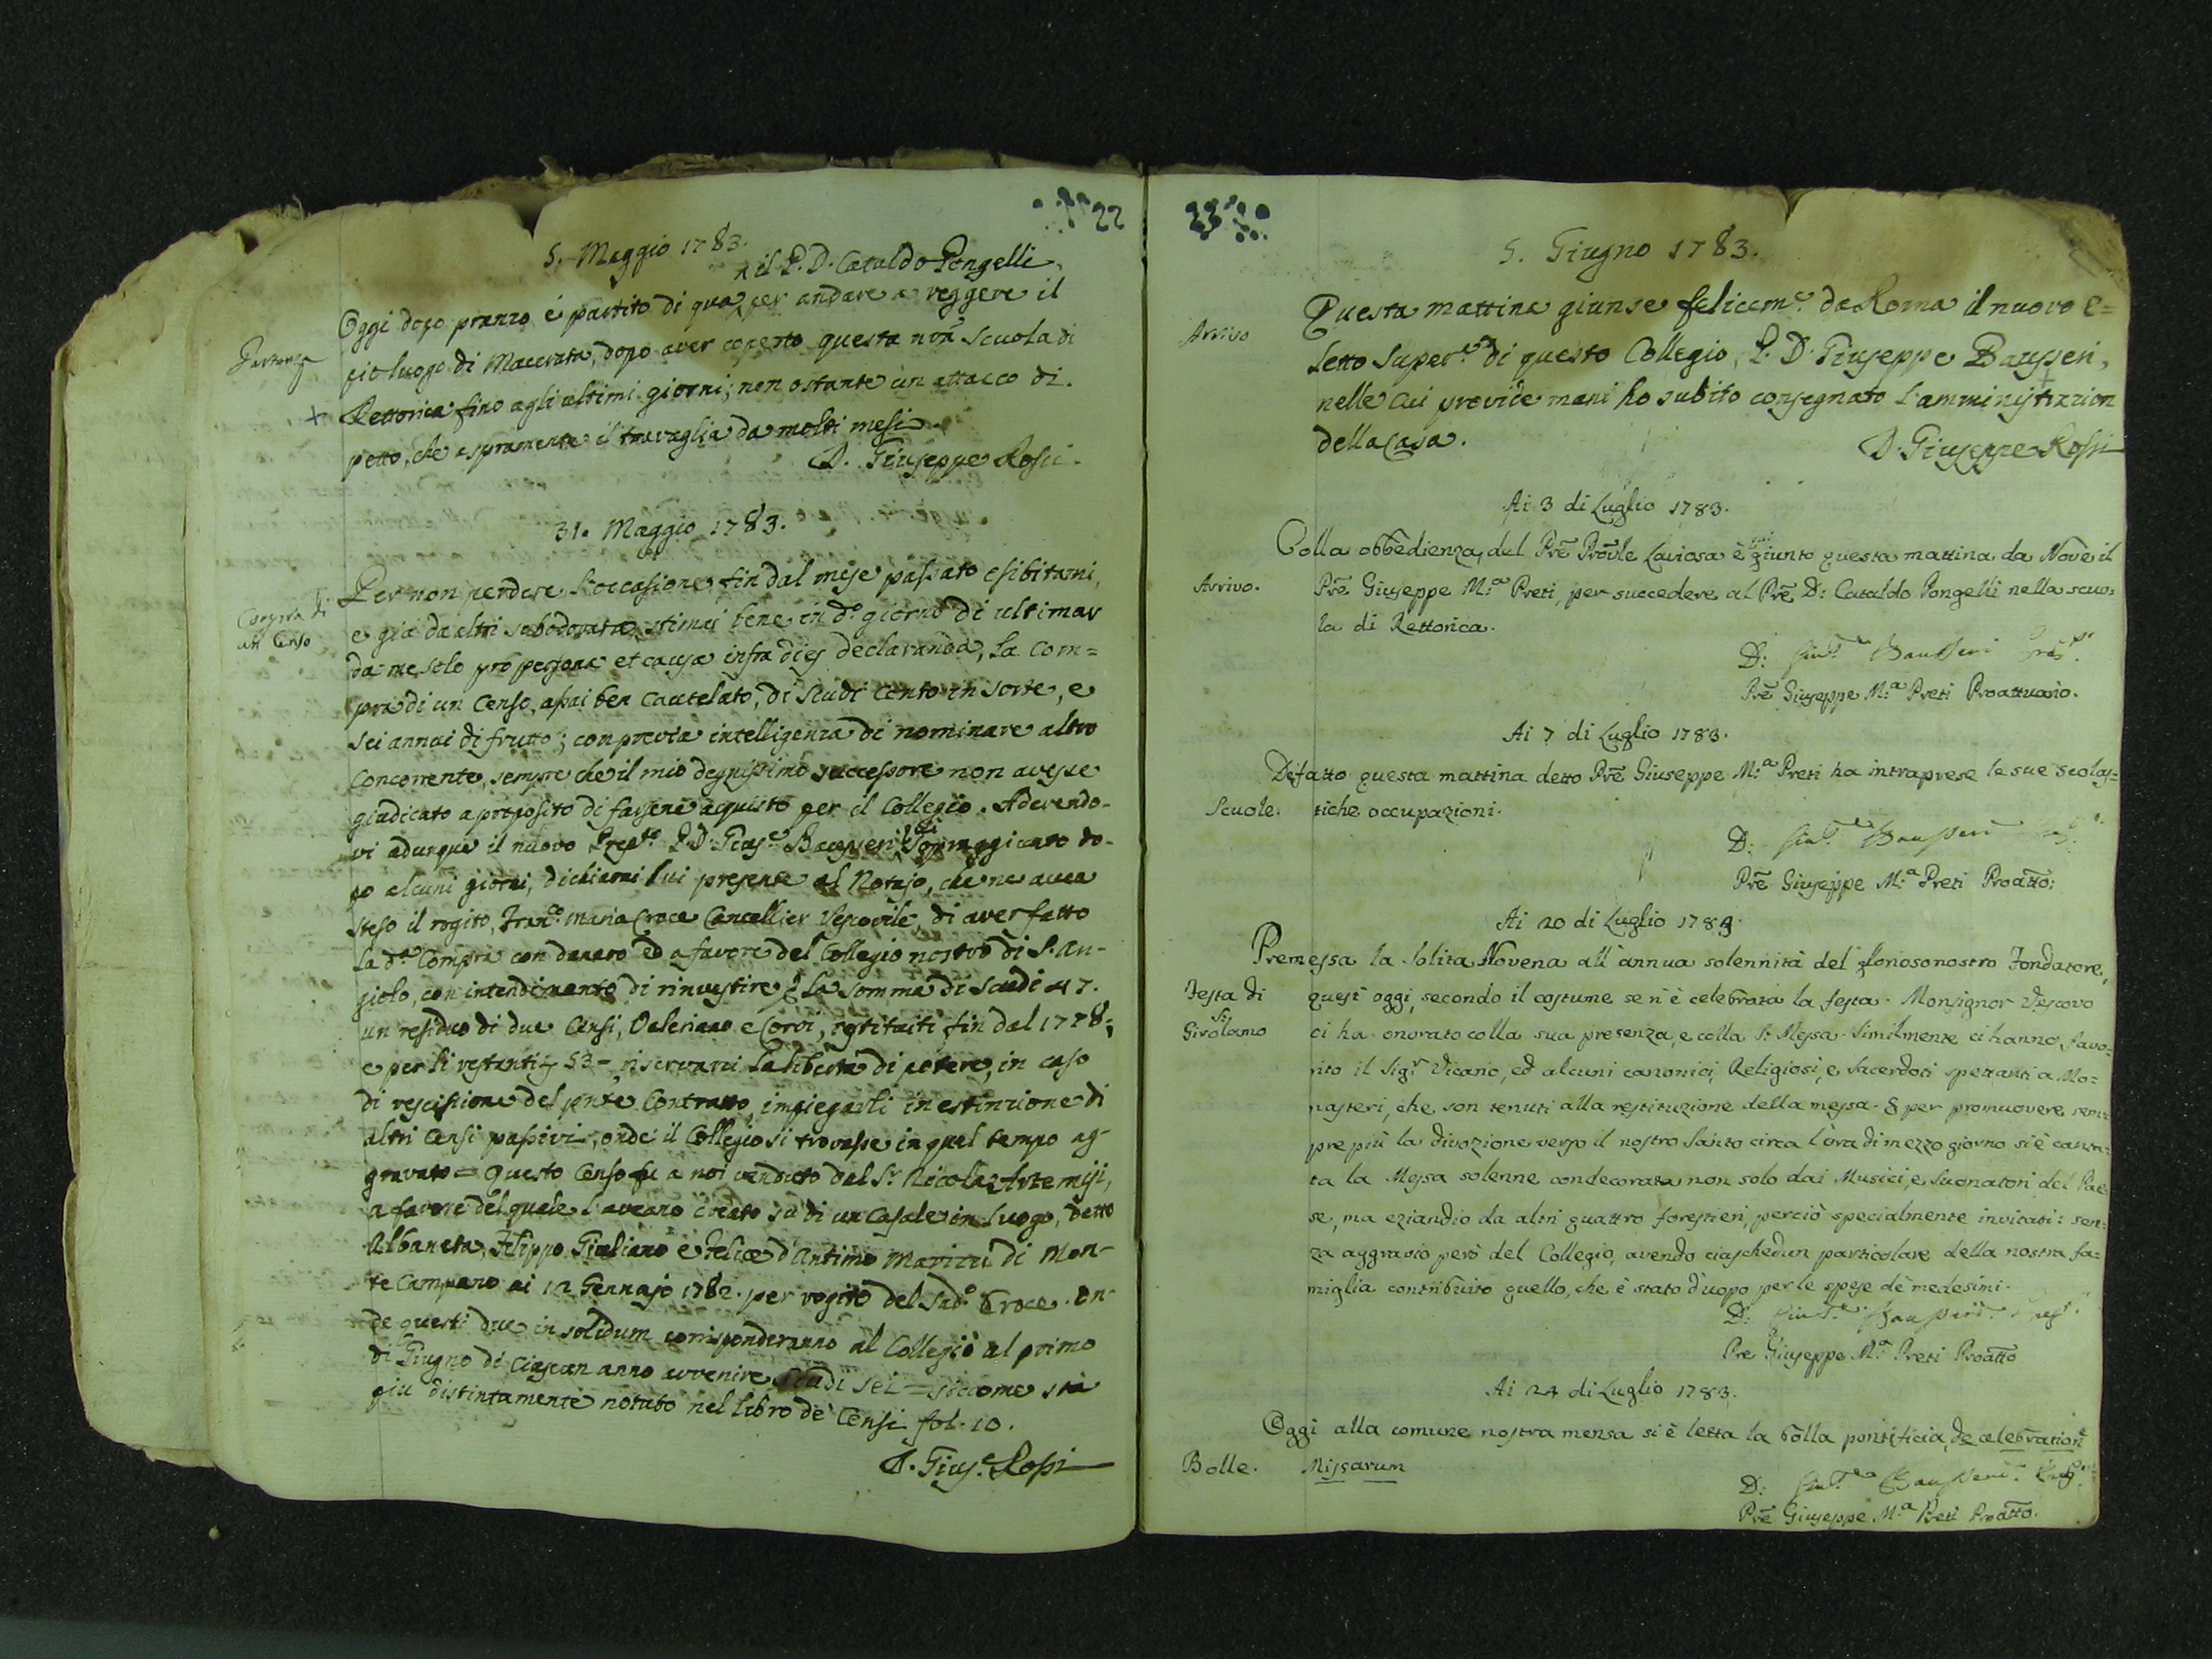 22
5. Maggio 1783.
il P. D. Cataldo Pongelli
Partenza
Oggi dopo pranzo è partito di qua, per andare a reggere il
pio luogo di Macerata, dopo aver coperto questa nrã Scuola di
Rettorica fino agli ultimi giorni; non ostante un attacco di
petto, che aspramente il travaglia da molti mesi.
D. Giuseppe Rossi.
31. Maggio 1783.
Compra di
un Censo
Per non perdere l'occasione fin dal mese passato esibitami,
e già da altri subodorata, stimai bene in dº giorno di ultimar
da me solo pro persona et causa infra dies declaranda, la com=
pra di un Censo, assai ben cautelato, di Scudi cento in sorte, e
sei annui di frutto; con previa intelligenza di nominare altro
Concorrente, sempre che il mio degnissimo successore non avesse
giudicato a proposito di farsene acquisto per il Collegio. Aderendo-
vi adunque il nuovo P. D. Gius.e Bausseri, sopraggiunto do-
po alcuni giorni, dichiarai lui presente al Notajo, che ne avea
steso il rogito, Franc.º Maria Croce Cancellier Vescovile, di aver fatto
la d.ª Compra con danaro ed a favore del Collegio nostro di S. An-
giolo, con intendimento di rinvestire la somma di Scudi 47.
un residuo di due Censi, Valeriano e Corvi, estituiti fin dal 1778;
e per li restanti 53 riservarci la libertà di potere, in caso
di rescissione del pnte Contratto, impiegarli in estinzione di
altri Censi passivi, onde il Collegio si trovasse in quel tempo ag-
gravato = Questo Censo fu a noi venduto dal Sr. Nicola Artemisi,
a favore del quale l'aveano creato su di un Casale in luogo, detto
Albaneta, Filippo Giuliano e Felice d'Antimo Marizzi di Mon-
te Compano ai 12 Gennajo 1782. per rogito del Sud.º Croce. On-
de questi due in solidum corrisponderanno al Collegio al primo
di Giugno di ciascun anno avvenire Scudi sei = siccome sta
più distintamente notato nel libro de' Censi fol. 10.
D. Gius.e Rossi
23
5. Giugno 1783.
Arrivo
Questa mattina giunse felicem.e da Roma il nuovo e=
letto Super.re di questo Collegio, P. D. Giuseppe Bausseri,
nelle cui provide mani ho subito consegnato l'amministrazion
della Casa.
D. Giuseppe Rossi
Ai 3 di Luglio 1783.
Arrivo.
Colla obbedienza del Prẽ Prov̄le Laviosa è giunto questa mattina da Nove il
Prẽ Giuseppe M.ª Preti, per succedere al Prẽ D: Cataldo Pongelli nella scuo=
la di Rettorica.
D: Giu.e Bausseri
Prẽ Giuseppe M.ª Preti Proattuario.
Ai 7 di Luglio 1783.
Scuole.
Difatto questa mattina detto Prẽ Giuseppe M.ª Preti ha intraprese le sue scolas=
tiche occupazioni.
D: Giu.e Bausseri
Prẽ Giuseppe M.ª Preti Proatto:
Ai 20 di Luglio 1783.
Festa di
S.
Girolamo
Premessa la solita Novena all'annua solennità del glorioso nostro Fondatore,
quest'oggi, secondo il costume se n'è celebrata la festa. Monsignor Vescovo
ci ha onorato colla sua presenza, e colla S. Messa. Similmente ci hanno favo=
rito il Sigr Vicario, ed alcuni canonici, Religiosi, e Sacerdoti spettanti a Mo=
nasteri, che son tenuti alla restituzione della messa. E per promuovere sem=
pre più la divozione verso il nostro Santo circa l'ora di mezzo giorno si è canta=
ta la Messa solenne condecorata non solo dai Musici, e Suonatori del Pae=
se, ma eziandio da altri quattro forestieri, perciò specialmente invitati: sen=
za aggravio però del Collegio, avendo ciaschedun particolare della nostra fa=
miglia contribuito quello, che è stato d'uopo per le spese de' medesimi.
D: Giu.e Bausseri
Pre Giuseppe M.ª Preti Proatto
Ai 24 di Luglio 1783.
Bolle.
Oggi alla comune nostra mensa si è letta la bolla pontificia, de celebratione
Missarum
D: Giu.e Bausseri
Prẽ Giuseppe M.ª Preti Proatto.